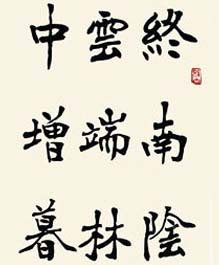 終南陰
雲端林
中增暮